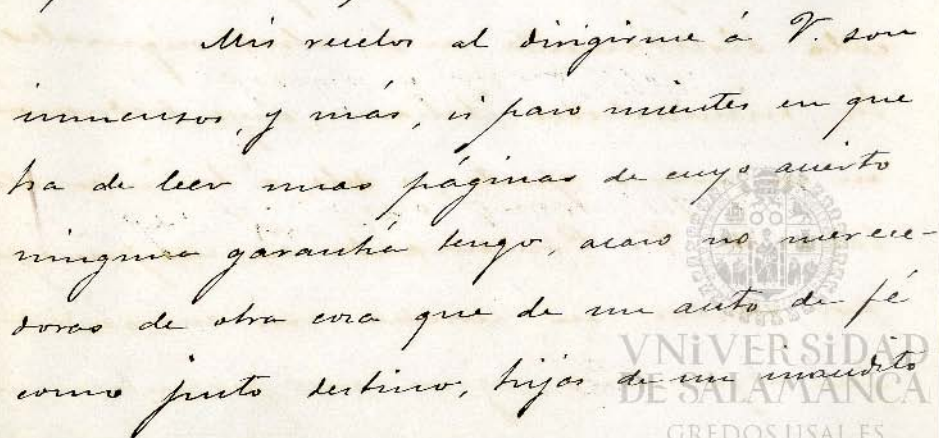 Mis recelos al dirigirme á V. son
inmensos, y más, si paro mientes en que
ha de leer unas páginas de cuyo acierto
ninguna garantía tengo, acaso no merece-
doras de otra cosa que de un auto de fé
como justo destino, hijas de un inaudito
VNiVERSiDAD
DE SALAMANCA
GREDOS.USAL.ES